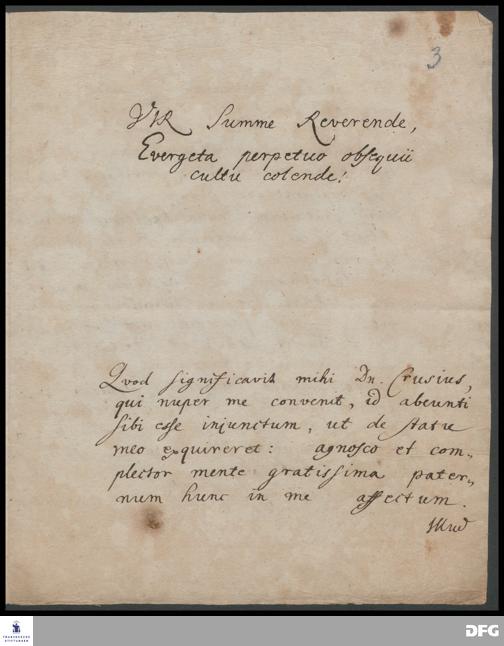 3
VIR Summe Reverende,
Evergeta perpetuo obsequii
cultu colende!
Qvod significavit mihi Dn. Crusius,
qui nuper me convenit, id abeunti
sibi esse injunctum, ut de statu
meo exquireret: agnosco et com„
plector mente gratissima pater„
num hunc in me affectum.
Illud
FRANCKESCHE
STIFTUNGEN
DFG